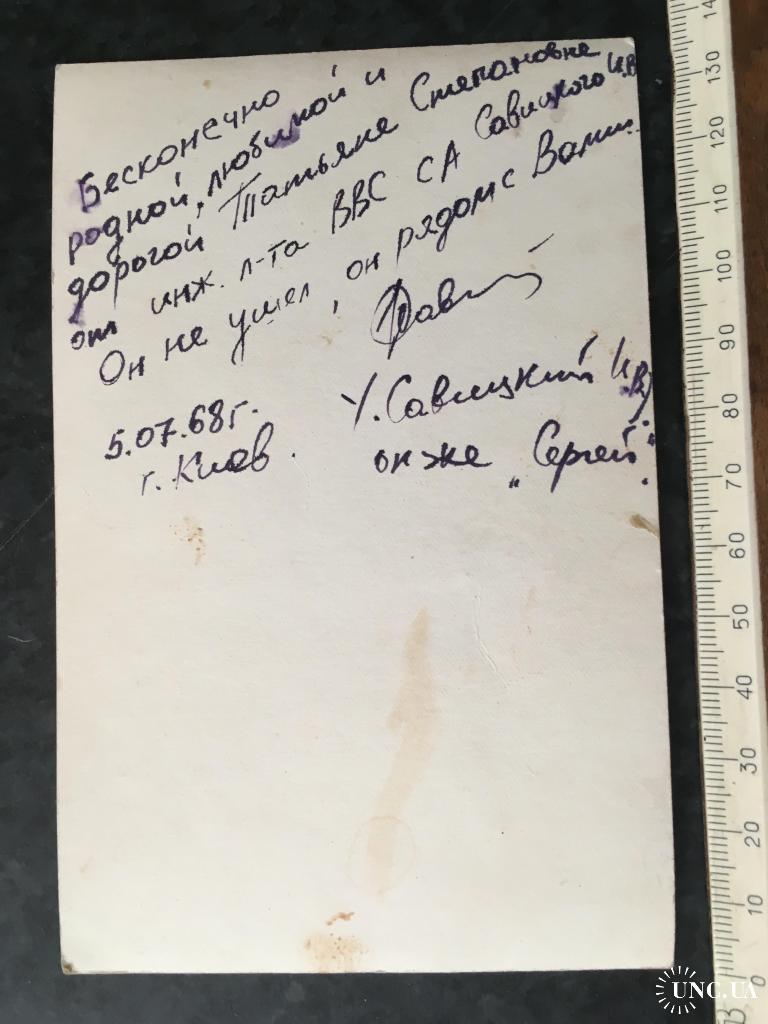 Бесконечно
родной, любимой и
дорогой Татьяне Степановне
от инж. л-та ВВС СА Савицкого И.В.
Он не ушел, он рядом с Вами.
5.07.68г.
г. Киев.
У. Савицкий И.В.
он же „Сергей".
140
130
120
110
100
90
80
70
60
50
40
30
20
10
0
UNC.UA